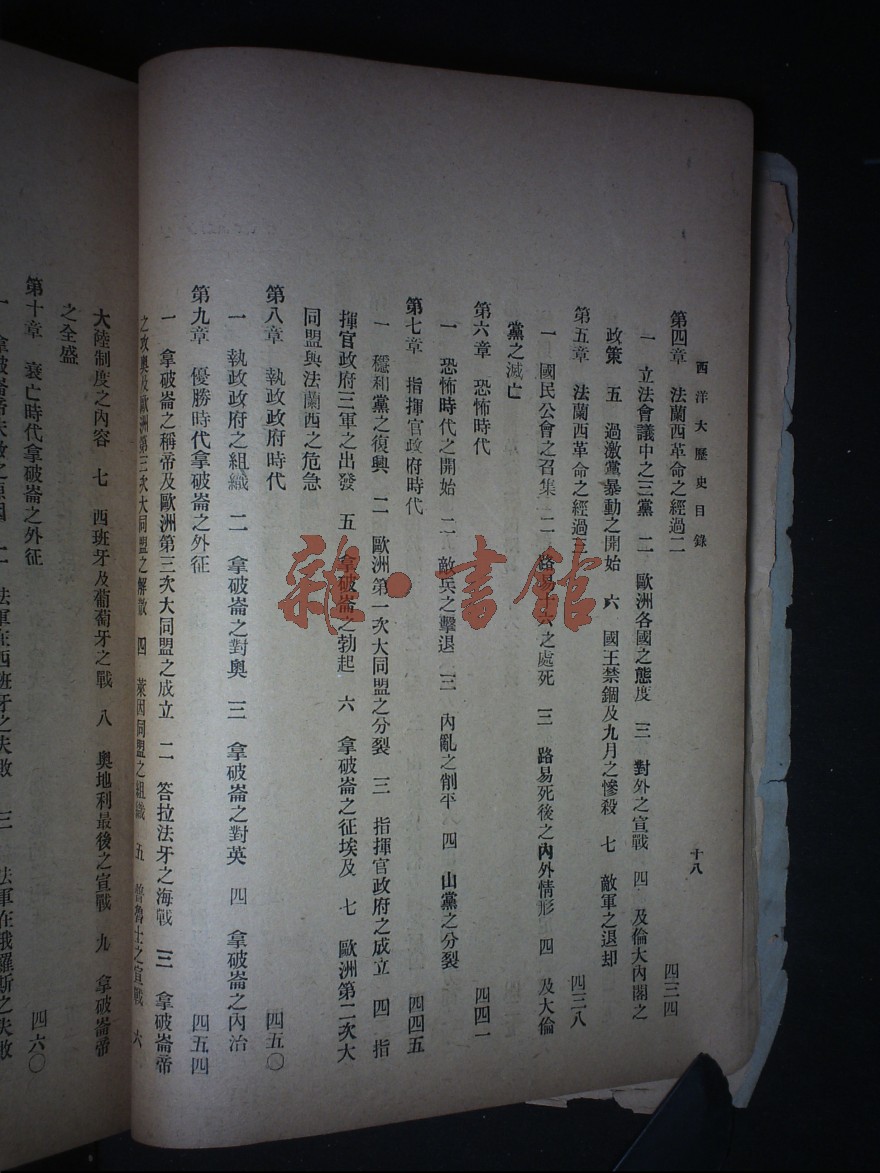 西洋大歷史目錄
十八
第四章 法蘭西革命之經過二 四三四
一 立法會議中之三黨 二 歐洲各國之態度 三 對外之宣戰 四 及倫大內閣之
政策 五 過激黨暴動之開始 六 國王禁錮及九月之慘殺 七 敵軍之退却
第五章 法蘭西革命之經過三 四三八
一 國民公會之召集 二 路易十六之處死 三 路易死後之內外情形 四 及大倫
黨之滅亡
第六章 恐怖時代 四四一
一 恐怖時代之開始 二 敵兵之擊退 三 內亂之削平 四 山黨之分裂
第七章 指揮官政府時代 四四五
一 穩和黨之復興 二 歐洲第一次大同盟之分裂 三 指揮官政府之成立 四 指
揮官政府三軍之出發 五 拿破崙之勃起 六 拿破崙之征埃及 七 歐洲第二次大
同盟與法蘭西之危急
第八章 執政政府時代 四五〇
一 執政政府之組織 二 拿破崙之對奧 三 拿破崙之對英 四 拿破崙之內治
第九章 優勝時代拿破崙之外征 四五四
一 拿破崙之稱帝及歐洲第三次大同盟之成立 二 答拉法牙之海戰 三 拿破崙帝
之攻奧及歐洲第三次大同盟之解散 四 萊因同盟之組織 五 普魯士之宣戰 六
大陸制度之內容 七 西班牙及葡萄牙之戰 八 奧地利最後之宣戰 九 拿破崙帝
之全盛
第十章 衰亡時代拿破崙之外征 四六〇
一 拿破崙帝失敗之原因 二 法軍在西班牙之失敗 三 法軍在俄羅斯之失敗
雜·書館